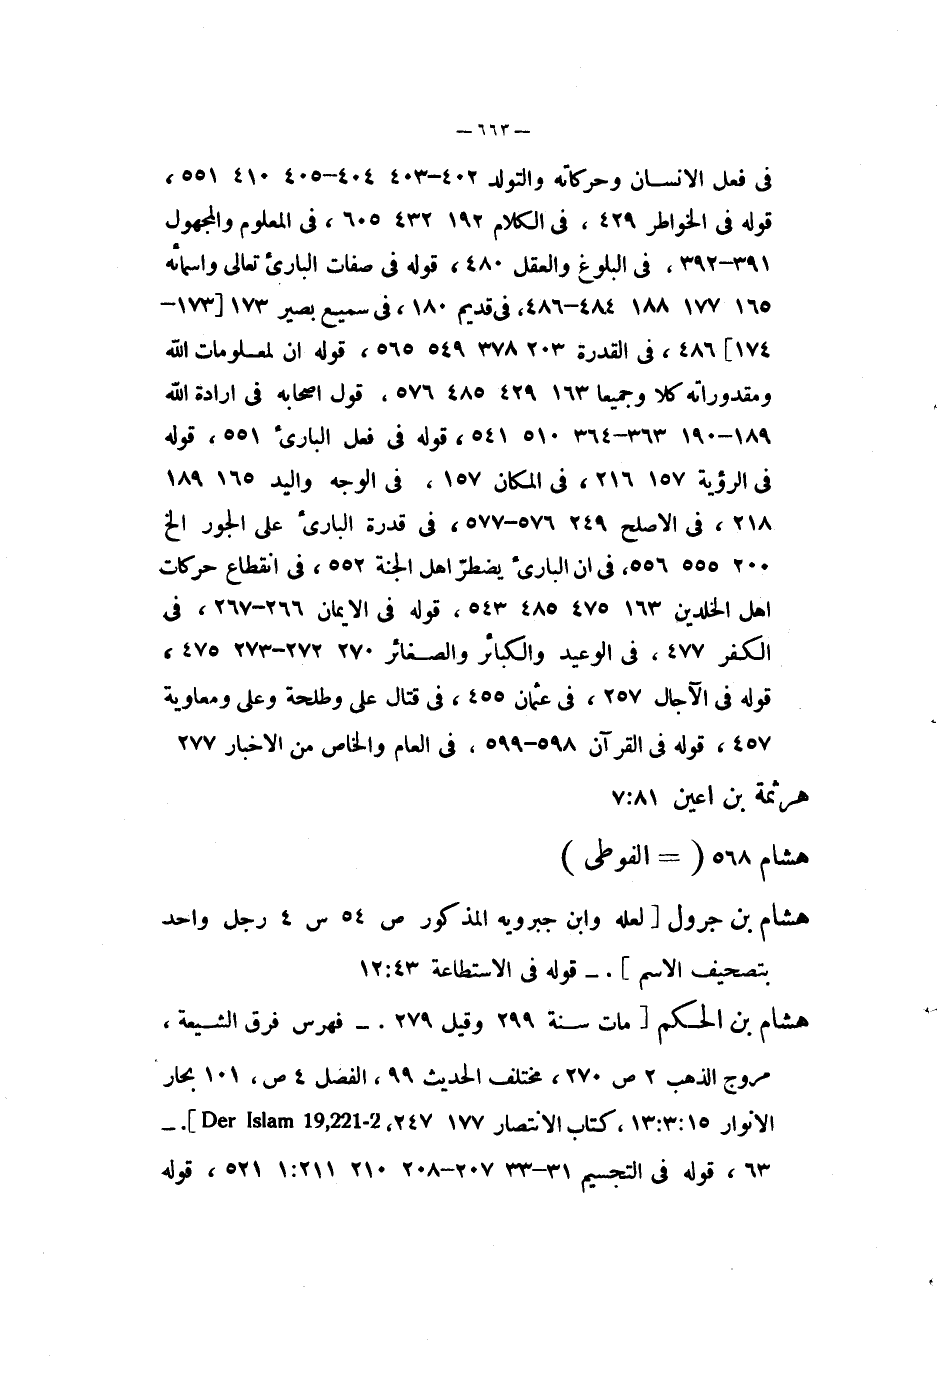 — ٦٦٣ —
فى فعل الانسان وحركاته والتولد ٤٠٢–٤٠٣ ٤٠٤–٤٠٥ ٤١٠ ٥٥١ ،
قوله فى الخواطر ٤٢٩ ، فى الكلام ١٩٢ ٤٣٢ ٦٠٥ ، فى المعلوم والمجهول
٣٩١–٣٩٢ ، فى البلوغ والعقل ٤٨٠ ، قوله فى صفات البارئ تعالى واسمائه
١٦٥ ١٧٧ ١٨٨ ٤٨٤–٤٨٦، فى قديم ١٨٠ ، فى سميع بصير ١٧٣ [١٧٣–
١٧٤] ٤٨٦ ، فى القدرة ٢٠٣ ٣٧٨ ٥٤٩ ٥٦٥ ، قوله ان لمعلومات الله
ومقدوراته كلا وجميعا ١٦٣ ٤٢٩ ٤٨٥ ٥٧٦ ، قول اصحابه فى ارادة الله
١٨٩–١٩٠ ٣٦٣–٣٦٤ ٥١٠ ٥٤١ ، قوله فى فعل البارئ ٥٥١ ، قوله
فى الرؤية ١٥٧ ٢١٦ ، فى المكان ١٥٧ ، فى الوجه واليد ١٦٥ ١٨٩
٢١٨ ، فى الاصلح ٢٤٩ ٥٧٦–٥٧٧ ، فى قدرة البارئ على الجور الخ
٢٠٠ ٥٥٥ ٥٥٦، فى ان البارئ يضطرّ اهل الجنة ٥٥٢ ، فى انقطاع حركات
اهل الخلدين ١٦٣ ٤٧٥ ٤٨٥ ٥٤٣ ، قوله فى الايمان ٢٦٦–٢٦٧ ، فى
الكفر ٤٧٧ ، فى الوعيد والكبائر والصغائر ٢٧٠ ٢٧٢–٢٧٣ ٤٧٥ ،
قوله فى الآجال ٢٥٧ ، فى عثمان ٤٥٥ ، فى قتال على وطلحة وعلى ومعاوية
٤٥٧ ، قوله فى القرآن ٥٩٨–٥٩٩ ، فى العام والخاص من الاخبار ٢٧٧
هرثمة بن اعين ٧:٨١
هشام ٥٦٨ ( = الفوطى )
هشام بن جرول [ لعله وابن جبرويه المذكور ص ٥٤ س ٤ رجل واحد
بتصحيف الاسم ] . ـ قوله فى الاستطاعة ١٢:٤٣
هشام بن الحكم [ مات سنة ٢٩٩ وقيل ٢٧٩ . ـ فهرس فرق الشيعة ،
مروج الذهب ٢ ص ٢٧٠ ، مختلف الحديث ٩٩ ، الفصل ٤ ص، ١٠١ بحار
الانوار ١٣:٣:١٥ ، كتاب الانتصار ١٧٧ ٢٤٧، Der Islam 19,221-2] . ـ
٦٣ ، قوله فى التجسيم ٣١–٣٣ ٢٠٧–٢٠٨ ٢١٠ ١:٢١١ ٥٢١ ، قوله